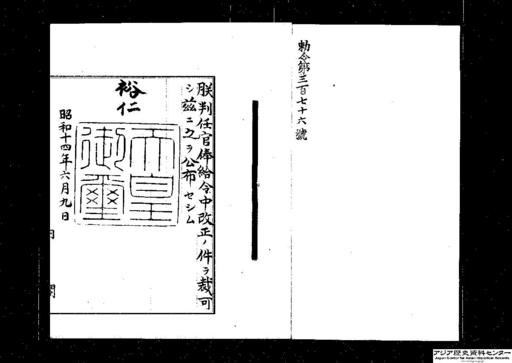 勅令第三百七十六號
朕判任官俸給令中改正ノ件ヲ裁可
シ茲ニ之ヲ公布セシム
裕仁
天皇
御璽
昭和十四年六月九日
内 閣
アジア歴史資料センター
Japan Center for Asian Historical Records